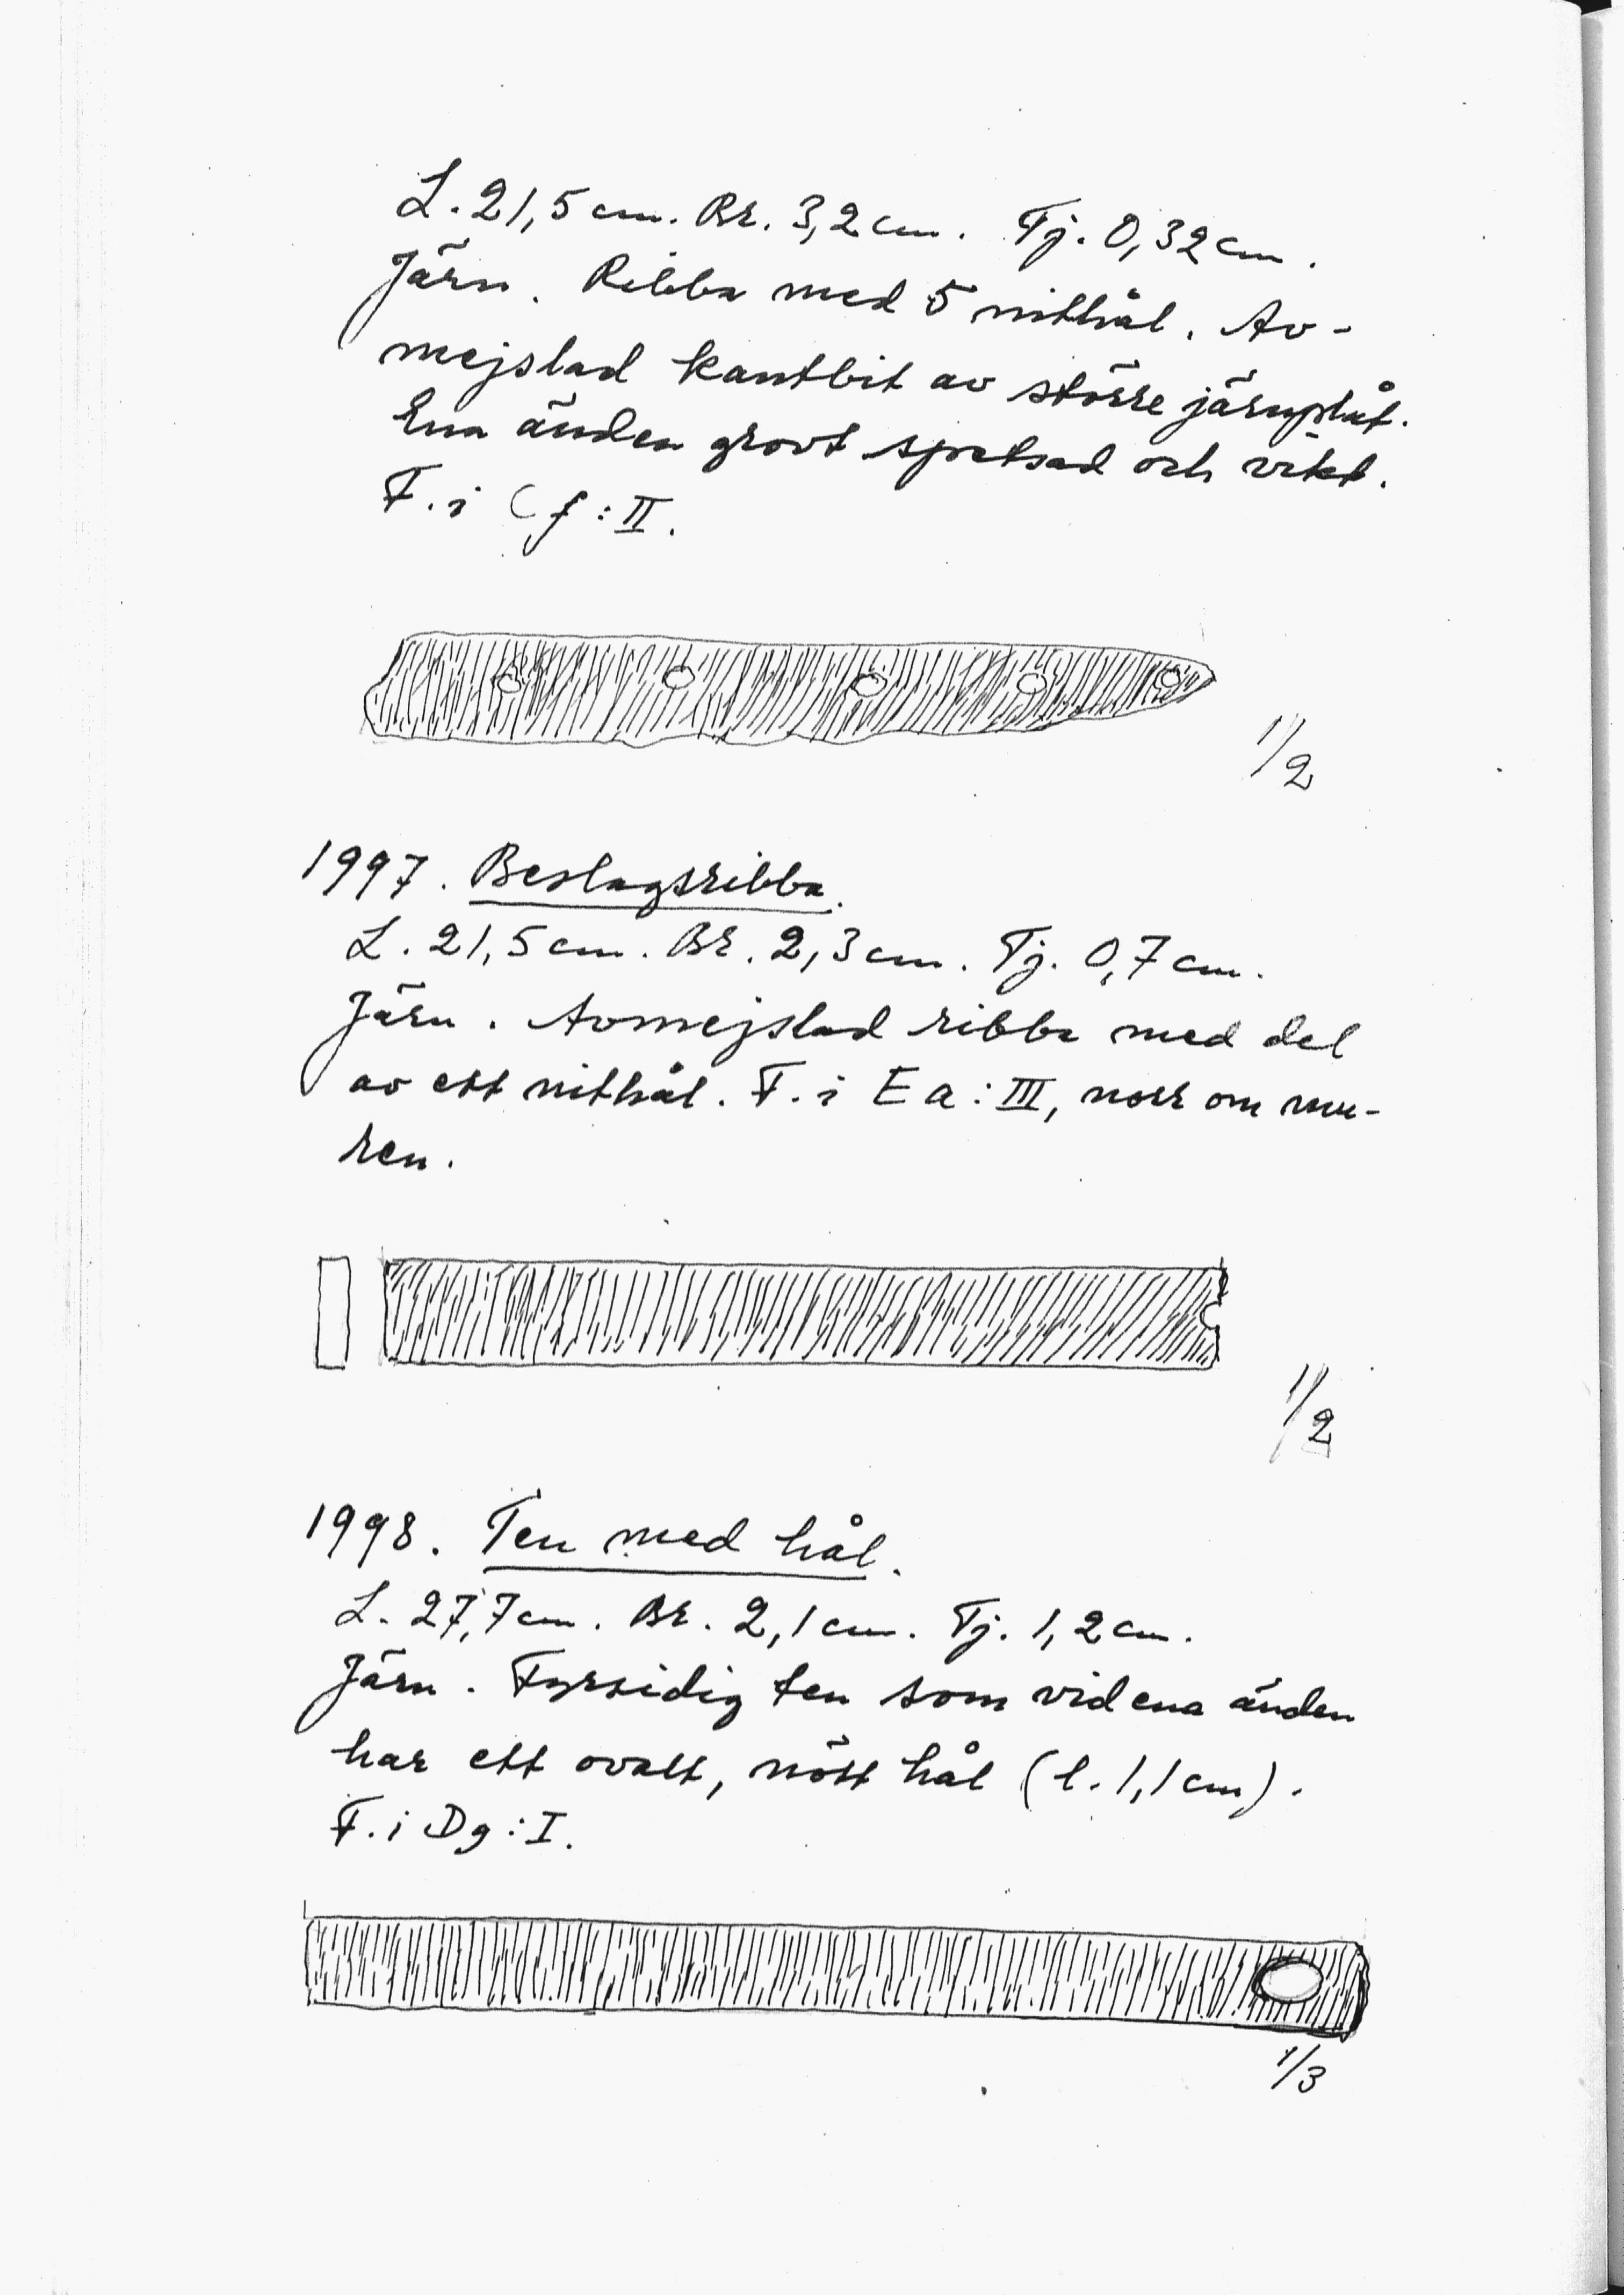 L. 21,5 cm. Br. 3,2 cm. Tj. 0,32 cm.
Järn. Ribba med 5 nithål. Av-
mejslad kantbit av större järnplåt.
Ena änden grovt spetsad och vikt.
F. i Cf:II.
1/2
1997. Beslagsribba.
L. 21,5 cm. Br. 2,3 cm. Tj. 0,7 cm.
Järn. Avmejslad ribba med del
av ett nithål. F. i Ea:III, norr om mu-
ren.
1/2
1998. Ten med hål.
L. 27,7 cm. Br. 2,1 cm. Tj. 1,2 cm.
Järn. Fyrsidig ten som vid ena änden
har ett ovalt, nött hål (l. 1,1 cm).
F. i Dg:I.
1/3